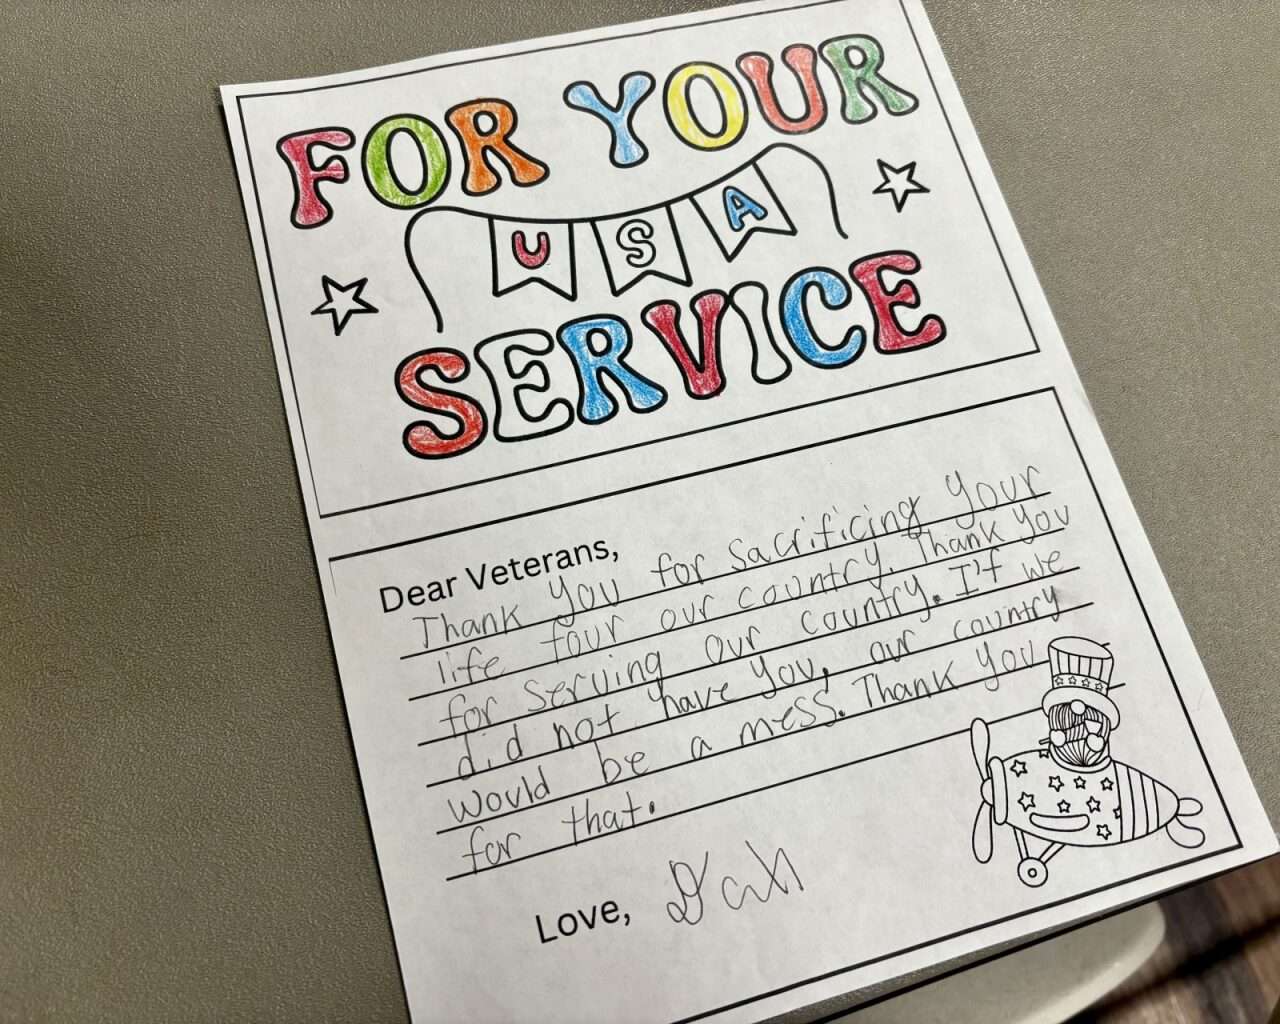 FOR YOUR
USA
SERVICE
Dear Veterans,
Thank you for sacrificing your
life four our country. Thank you
for serving our country. I'f we
did not have you, our country
would be a mess. Thank you
for that.
Love,